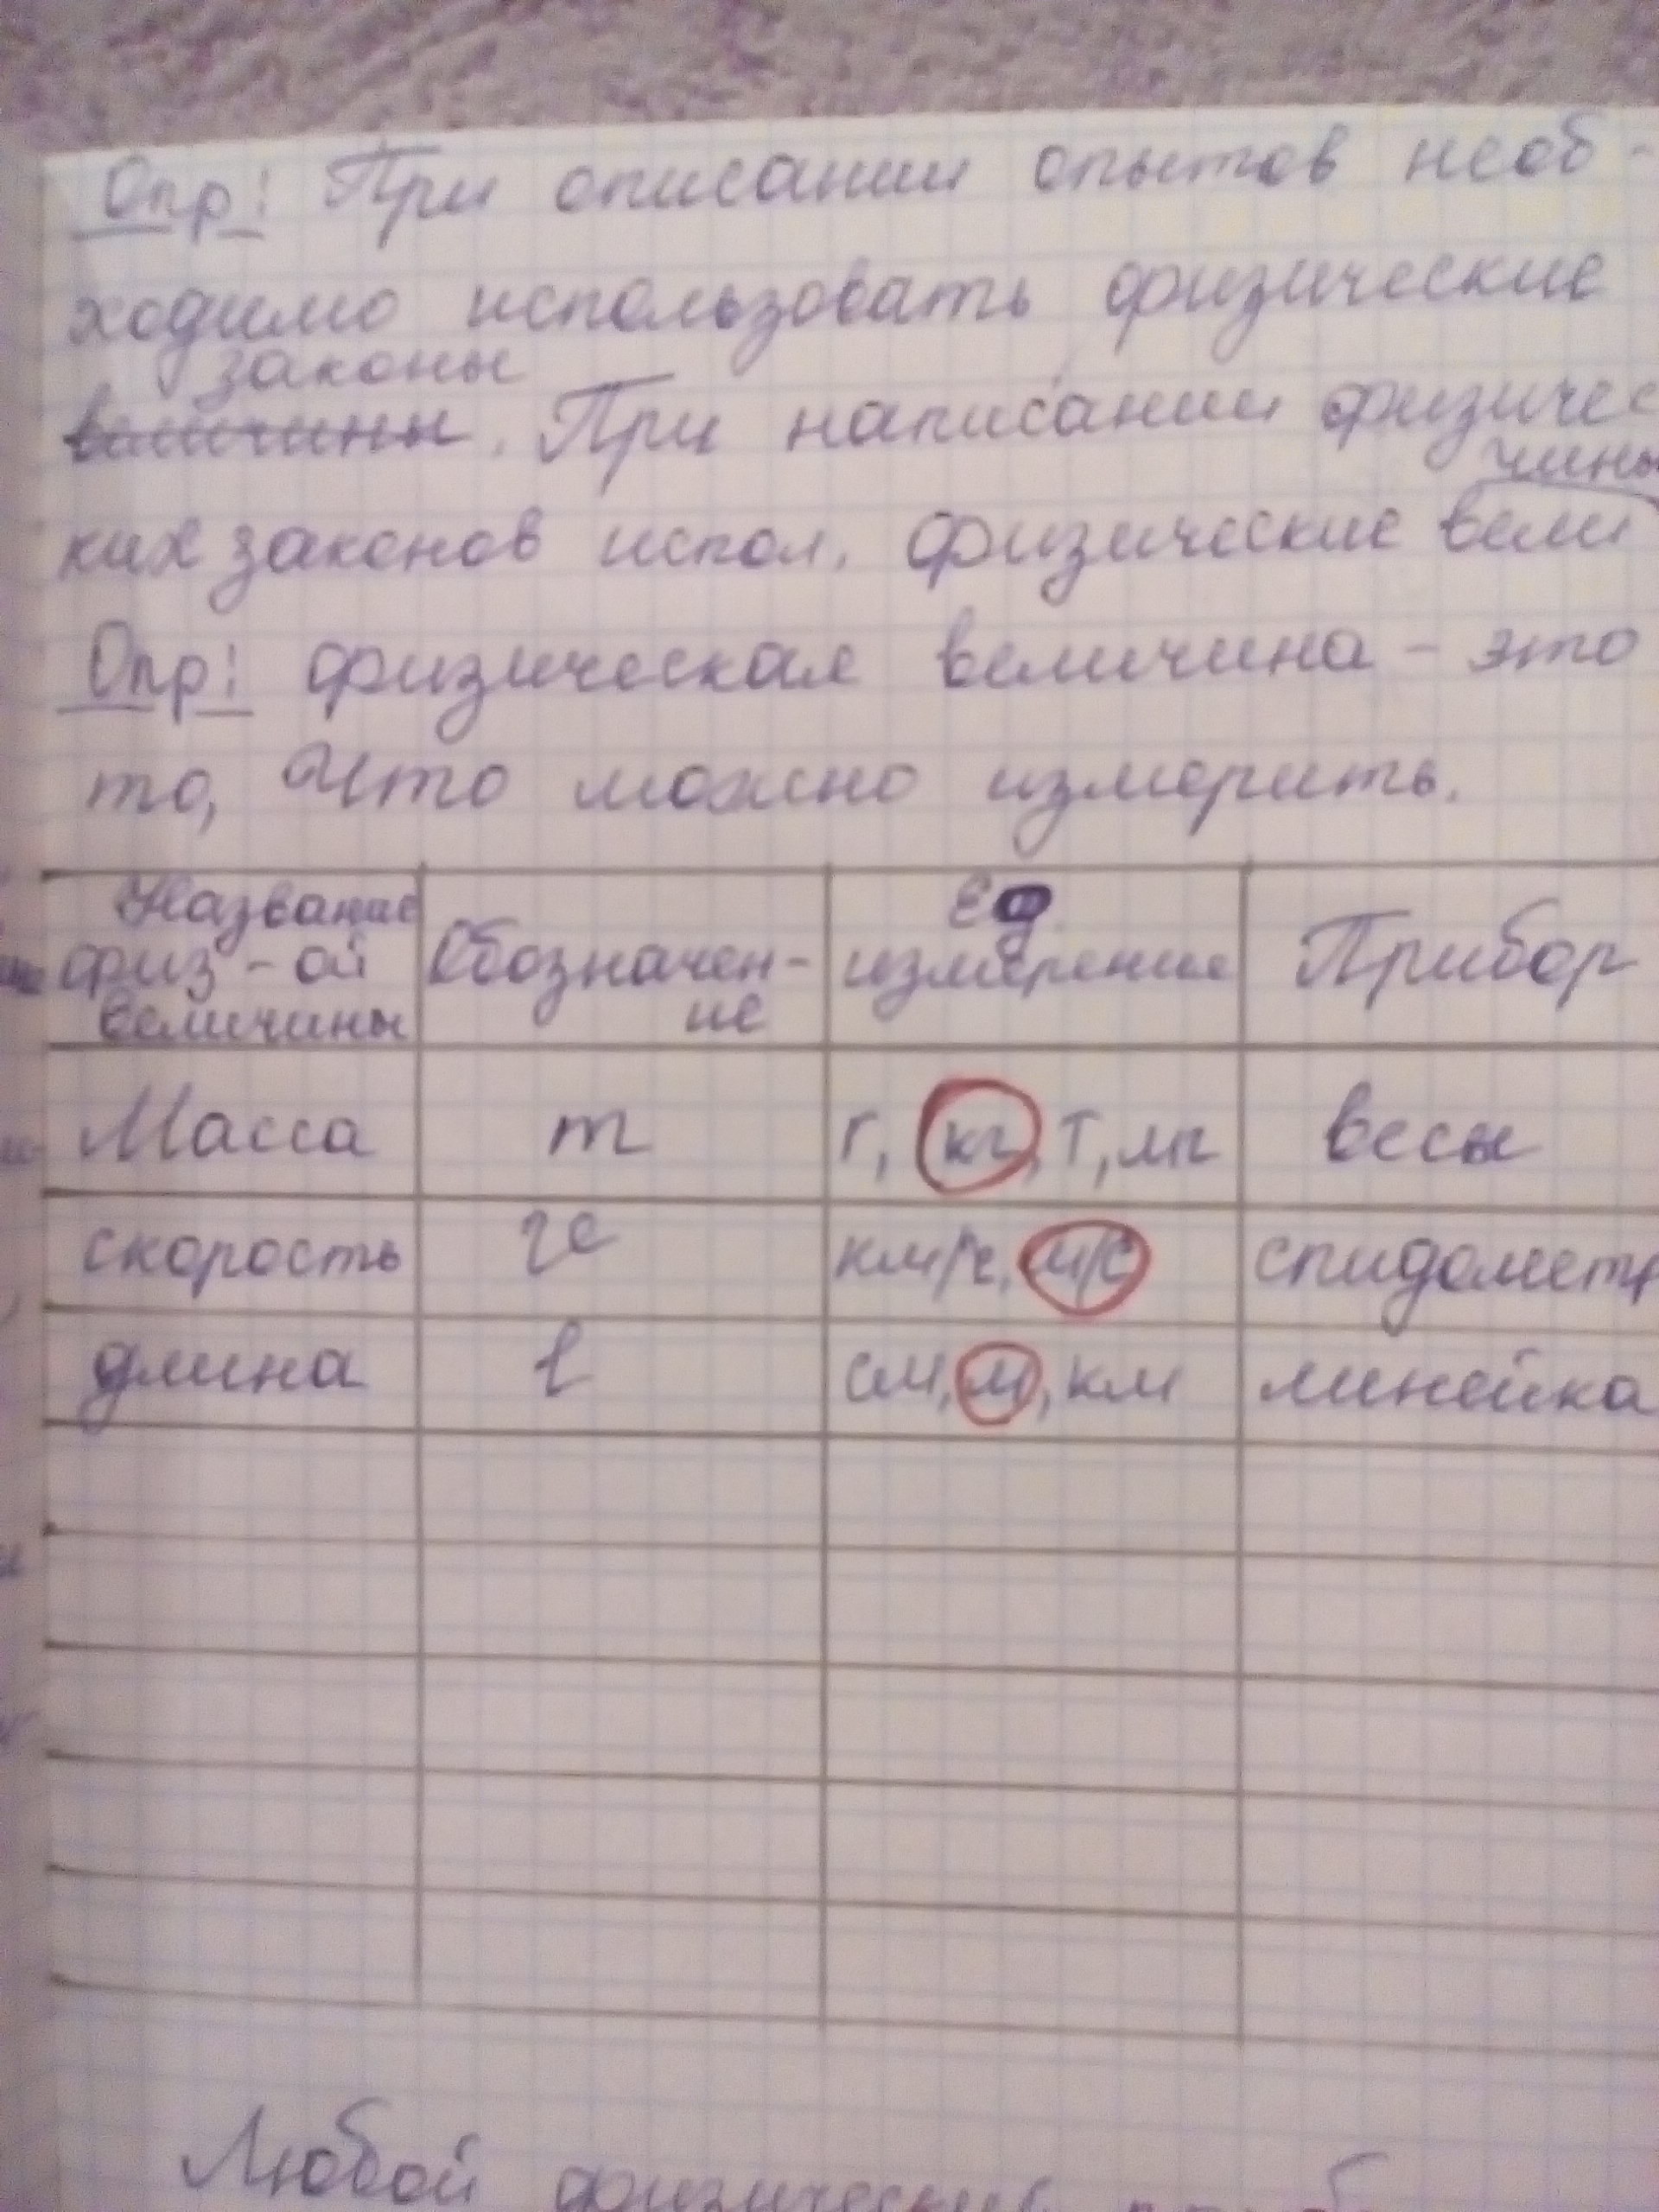 Опр: При описании опытов необ-
ходимо использовать физические
законы
величины. При написании физичес
чины
ких законов испол. физические вели
Опр: физическая величина - это
то, что можно измерить.
Название физ-ой величины Обозначен-ие Ед. измерение Прибор
Масса m г, кг, т, мг весы
скорость v км/ч, м/с спидометр
длина l см, м, км линейка
Любой физический